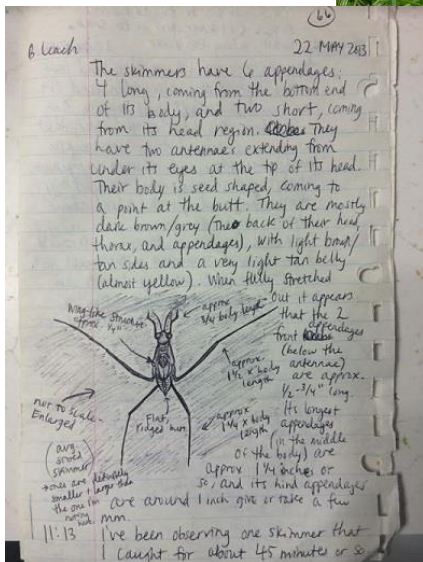 66
B Leach
22 MAY 2013
The skimmers have 6 appendages:
4 long, coming from the bottom end
of its body, and two short, coming
from its head region. They
have two antennae's extending from
under its eyes at the tip of its head.
Their body is seed shaped, coming to
a point at the butt. They are mostly
dark brown/grey (the back of their head,
thorax, and appendages), with light brown/
tan sides and a very light tan belly
(almost yellow). When fully stretched
out it appears
that the 2
front appendages
(below the
antennae)
are approx.
1/2 - 3/4" long.
Its longest
appendages
(in the middle
of the body) are
approx 1 1/4 inches or
so, and its hind appendages
are around 1 inch give or take a few
mm.
Wing-like structure
approx. 1/4"
approx
3/4 body length
approx.
1 1/2 x body
length
approx
1 1/4 x body
length
Flat,
ridged
not to scale-
Enlarged
(avg
sized
skimmer
→ ones are definitely
smaller + larger than
the one I'm
11:13
I've been observing one skimmer that
I caught for about 45 minutes or so